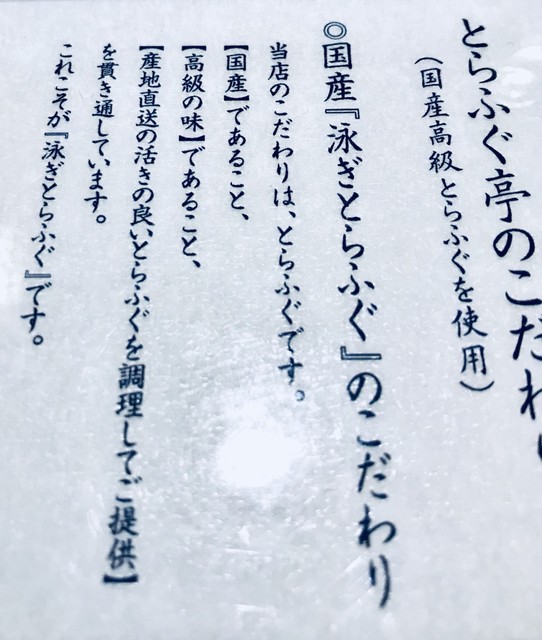 とらふぐ亭のこだわり
(国産高級とらふぐを使用)
◎国産『泳ぎとらふぐ』のこだわり
当店のこだわりは、とらふぐです。
【国産】であること、
【高級の味】であること、
【産地直送の活きの良いとらふぐを調理してご提供】
を貫き通しています。
これこそが『泳ぎとらふぐ』です。